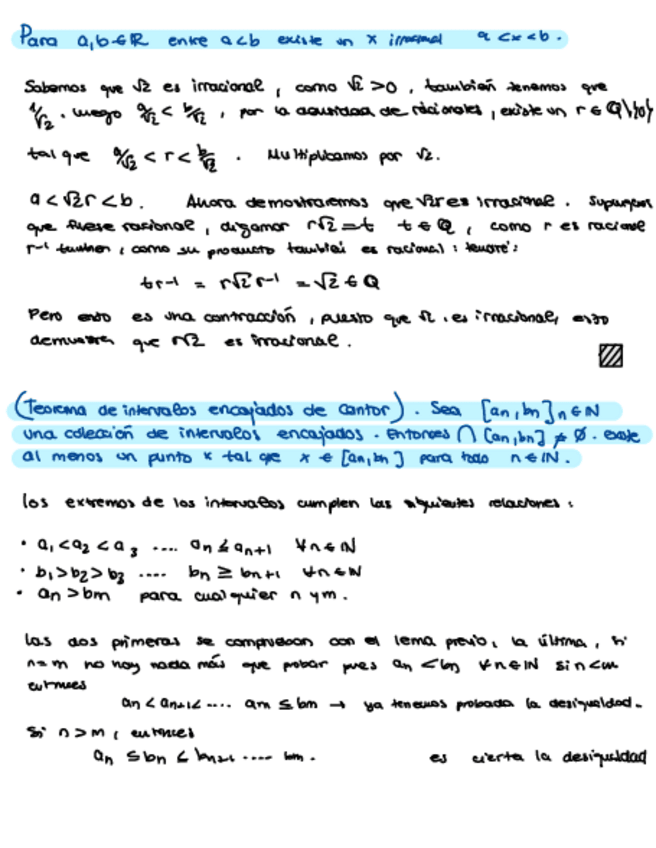 Para a,b∈ℝ entre a<b existe un x irracional a<x<b.
Sabemos que √2 es irracional, como √2 >0, también tenemos que
1/√2. Luego a/√2 < b/√2, por la densidad de racionales, existe un r ∈ ℚ\{0}
tal que a/√2 < r < b/√2. Multiplicamos por √2.
a<√2r<b. Ahora demostraremos que √2r es irracional. Supongamos
que fuese racional, digamos r√2=t t∈ℚ, como r es racional
r⁻¹ también, como su producto también es racional: tendré:
tr⁻¹ = r√2r⁻¹ = √2 ∈ ℚ
Pero esto es una contracción, puesto que √2 es irracional, esto
demuestra que r√2 es irracional.
(Teorema de intervalos encajados de Cantor). Sea [an,bn]n∈ℕ
una colección de intervalos encajados. Entonces ∩ [an,bn] ≠ ∅. existe
al menos un punto x tal que x ∈ [an,bn] para todo n∈ℕ.
los extremos de los intervalos cumplen las siguientes relaciones:
• a₁<a₂<a₃ .... an ≤ an+1 ∀n∈ℕ
• b₁>b₂>b₃ .... bn ≥ bn+1 ∀n∈ℕ
• an > bm para cualquier n y m.
las dos primeras se comprueban con el lema previo, la última, si
n=m no hay nada más que probar pues an < bn ∀n∈ℕ si n<m
entonces
an < an+1< .... am ≤ bm → ya tenemos probada la desigualdad.
Si n>m, entonces
an ≤ bn ≤ bn+1 .... bm. es cierta la desigualdad